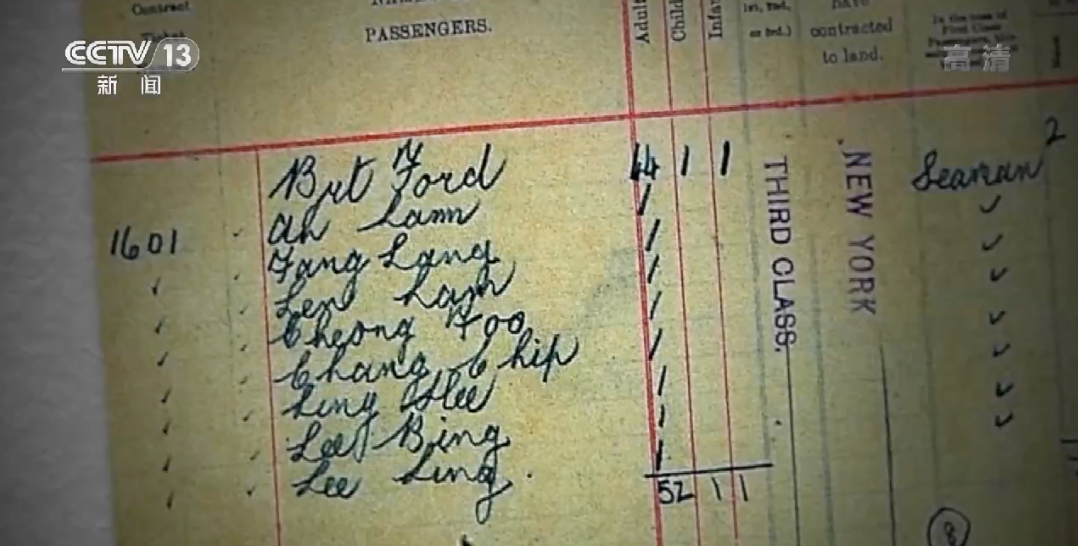 CCTV 13
新闻
高清
Contract
Ticket
PASSENGERS.
1st, 2nd,
or 3rd.)
contracted
to land.
In the case of
First Class
Passengers,
Adul
Child
Infa
But Ford 44 1 1 Seaman 2
Ah Lam
1601 Fang Lang
Len Lam
Cheong Foo
Chang Chip
Ling Hee
Lee Bing
Lee Ling.
52 1 1
THIRD CLASS.
NEW YORK
8